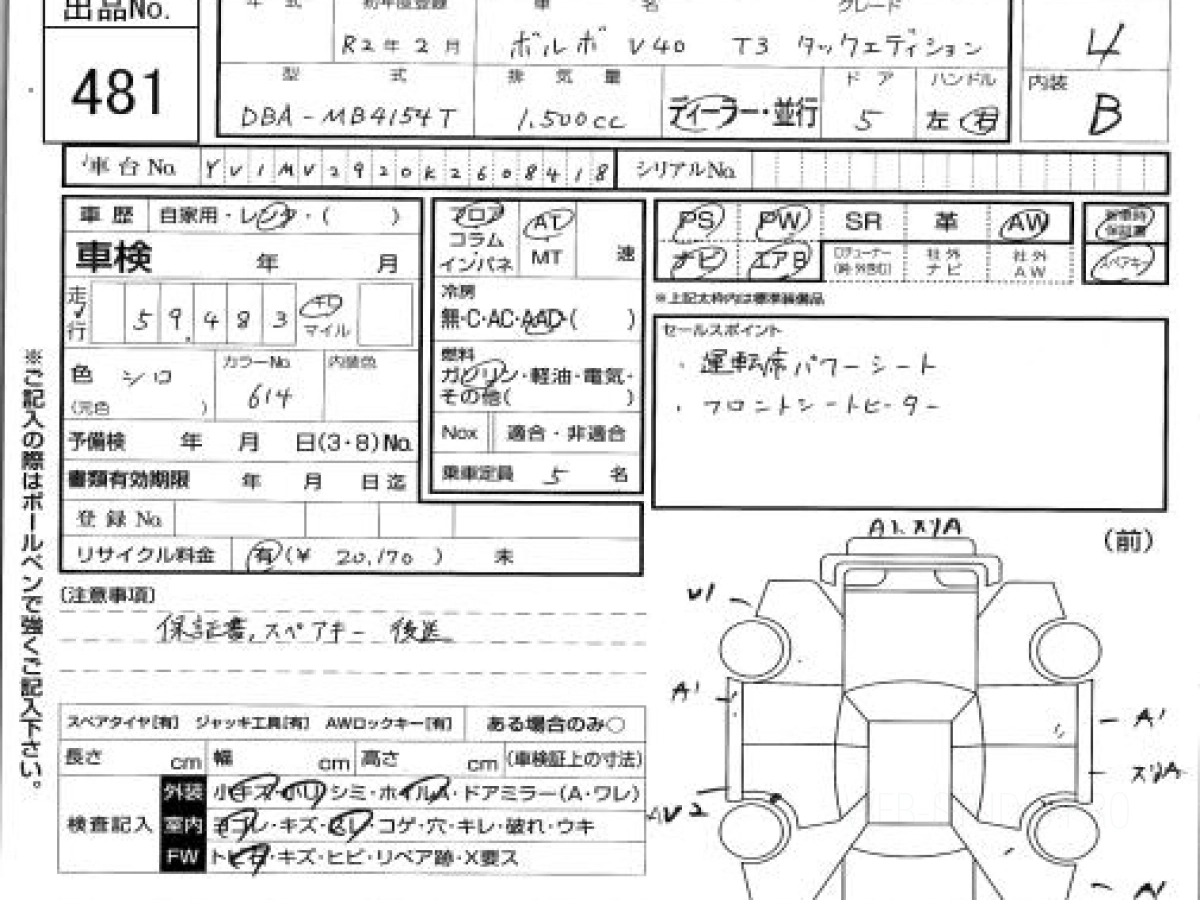 出品No.
481
年 式
初年度登録
R2年2月
車 名
ボルボ V40
グレード
T3 タックエディション
4
型 式
DBA-MB4154T
排 気 量
1.500cc
ディーラー・並行
ド ア
5
ハンドル
左 右
内装
B
車台No. YV1MV2920K2608418
シリアルNo.
車 歴 自家用・レンタ・( )
車検 年 月
走行 59.483 キロ マイル
色 シロ
(元色 )
カラーNo. 614
内装色
予備検 年 月 日(3・8)No.
書類有効期限 年 月 日迄
登録No.
リサイクル料金 有(¥ 20,170 ) 未
フロア
コラム
インパネ
AT
MT
速
冷房
無・C・AC・AAC・( )
燃料
ガソリン・軽油・電気・
その他( )
Nox 適合・非適合
乗車定員 5 名
PS PW SR 革 AW
新車時保証書
ナビ エアB
社外ナビ
社外AW
スペアキー
※上記太枠内は標準装備品
セールスポイント
・運転席パワーシート
・フロントシートヒーター
※ご記入の際はボールペンで強くご記入下さい。
(注意事項)
保証書、スペアキー 後送
スペアタイヤ[有] ジャッキ工具[有] AWロックキー[有] ある場合のみ○
長さ cm 幅 cm 高さ cm (車検証上の寸法)
検査記入
外装 小キズ・小凹・シミ・ホイルA・ドアミラー(A・ワレ)
室内 ヨゴレ・キズ・スレ・コゲ・穴・キレ・破れ・ウキ
FW トビ石・キズ・ヒビ・リペア跡・X要ス
(前)
A1、スリA
U1
A1
A1
スリA
AU2